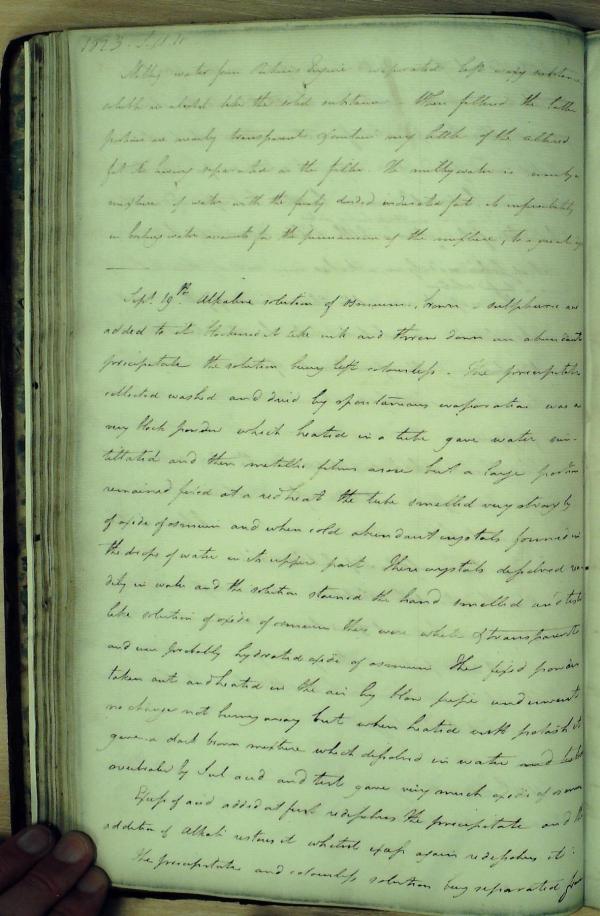 1823. Sept.
Milky water from Perkins Engine evaporated left waxy substance
soluble in alcohol like the solid substance. When filtered the latter
portions are nearly transparent & contain very little of the altered
fat it having separated in the filter. The milky water is merely a
mixture of water with the finely divided indurated fat its infusibility
in boiling water accounts for the permanence of the mixture, to a great
Sept. 19th. Alkaline solution of osmium, brown - sulphuric acid
added to it blackened it like ink and threw down an abundant
precipitate the solution being left colourless. The precipitate
collected washed and dried by spontaneous evaporation was a
very black powder which heated in a tube gave water
and then metallic films arose but a large portion
remained fixed at a red heat the tube smelled very strongly
of oxide of osmium and when cold abundant crystals formed in
the drops of water in its upper part. These crystals dissolved
in water and the solution stained the hand smelled and tasted
like solution of oxide of osmium they were white & transparent
and were probably hydrated oxide of osmium The fixed portion
taken out and heated in the air by blow pipe underwent
no change not burning away but when heated with potash it
gave a dark brown mixture which dissolved in water and
neutralised by Sul acid and gave very much oxide of osmium
Excess of acid added at first redissolves the precipitate and the
addition of Alkali restores it whilst excess again redissolves it.
The precipitate and colourless solution being separated from